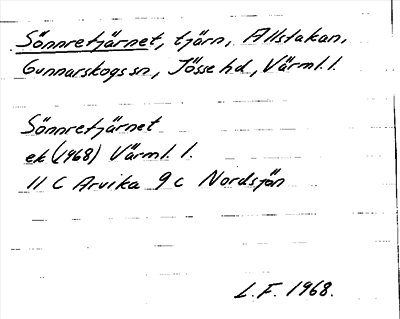 Sönnretjärnet, tjärn, Allstakan,
Gunnarskogs sn, Jösse hd, Värml. l.
Sönnretjärnet
ek (1968) Värml. l.
11 C Arvika 9 c Nordsjön
L.F. 1968.